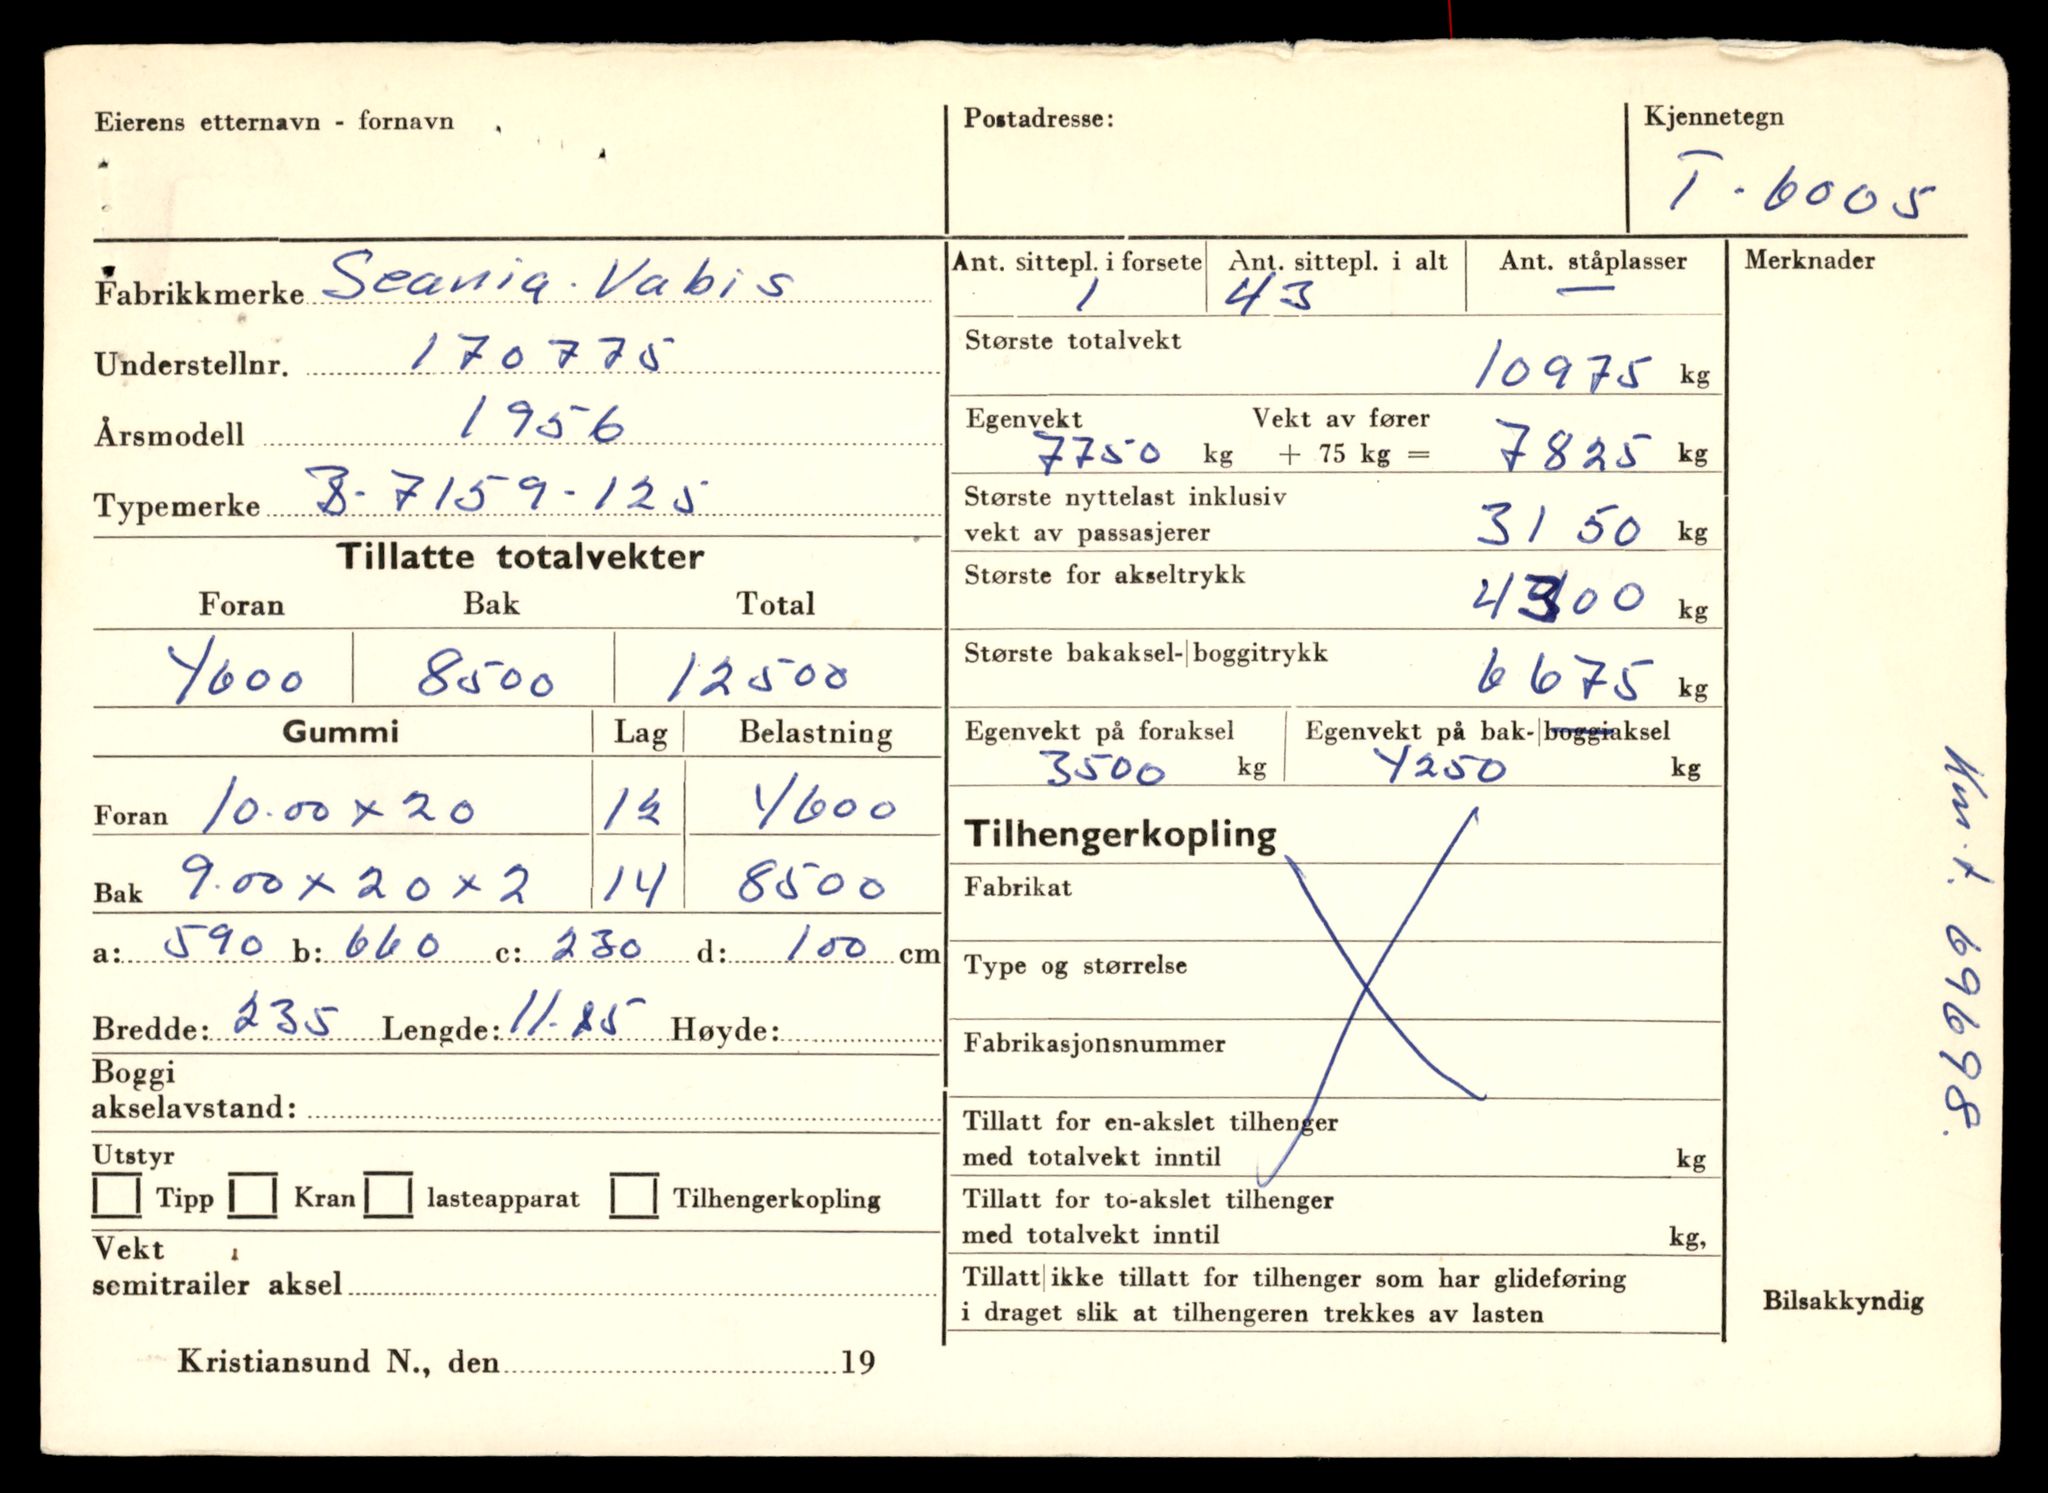 Eierens etternavn - fornavn
Postadresse:
Kjennetegn
T-6005
Fabrikkmerke Scania-Vabis
Understellnr. 170775
Årsmodell 1956
Typemerke B-7159-125
Tillatte totalvekter
Foran Bak Total
4600 8500 12500
Gummi Lag Belastning
Foran 10.00 x 20 12 4600
Bak 9.00 x 20 x 2 14 8500
a: 590 b: 660 c: 230 d: 100 cm
Bredde: 235 Lengde: 11.85 Høyde:
Boggi
akselavstand:
Utstyr
Tipp Kran lasteapparat Tilhengerkopling
Vekt
semitrailer aksel
Kristiansund N., den 19
Ant. sittepl. i forsete Ant. sittepl. i alt Ant. ståplasser
1 43 —
Største totalvekt
10975 kg
Egenvekt Vekt av fører
7750 kg + 75 kg = 7825 kg
Største nyttelast inklusiv
vekt av passasjerer 3150 kg
Største for akseltrykk
4300 kg
Største bakaksel-|boggitrykk
6675 kg
Egenvekt på foraksel Egenvekt på bak-|boggiaksel
3500 kg 4250 kg
Tilhengerkopling
Fabrikat
Type og størrelse
Fabrikasjonsnummer
Tillatt for en-akslet tilhenger
med totalvekt inntil kg
Tillatt for to-akslet tilhenger
med totalvekt inntil kg,
Tillatt|ikke tillatt for tilhenger som har glideføring
i draget slik at tilhengeren trekkes av lasten
Merknader
696698.
Bilsakkyndig